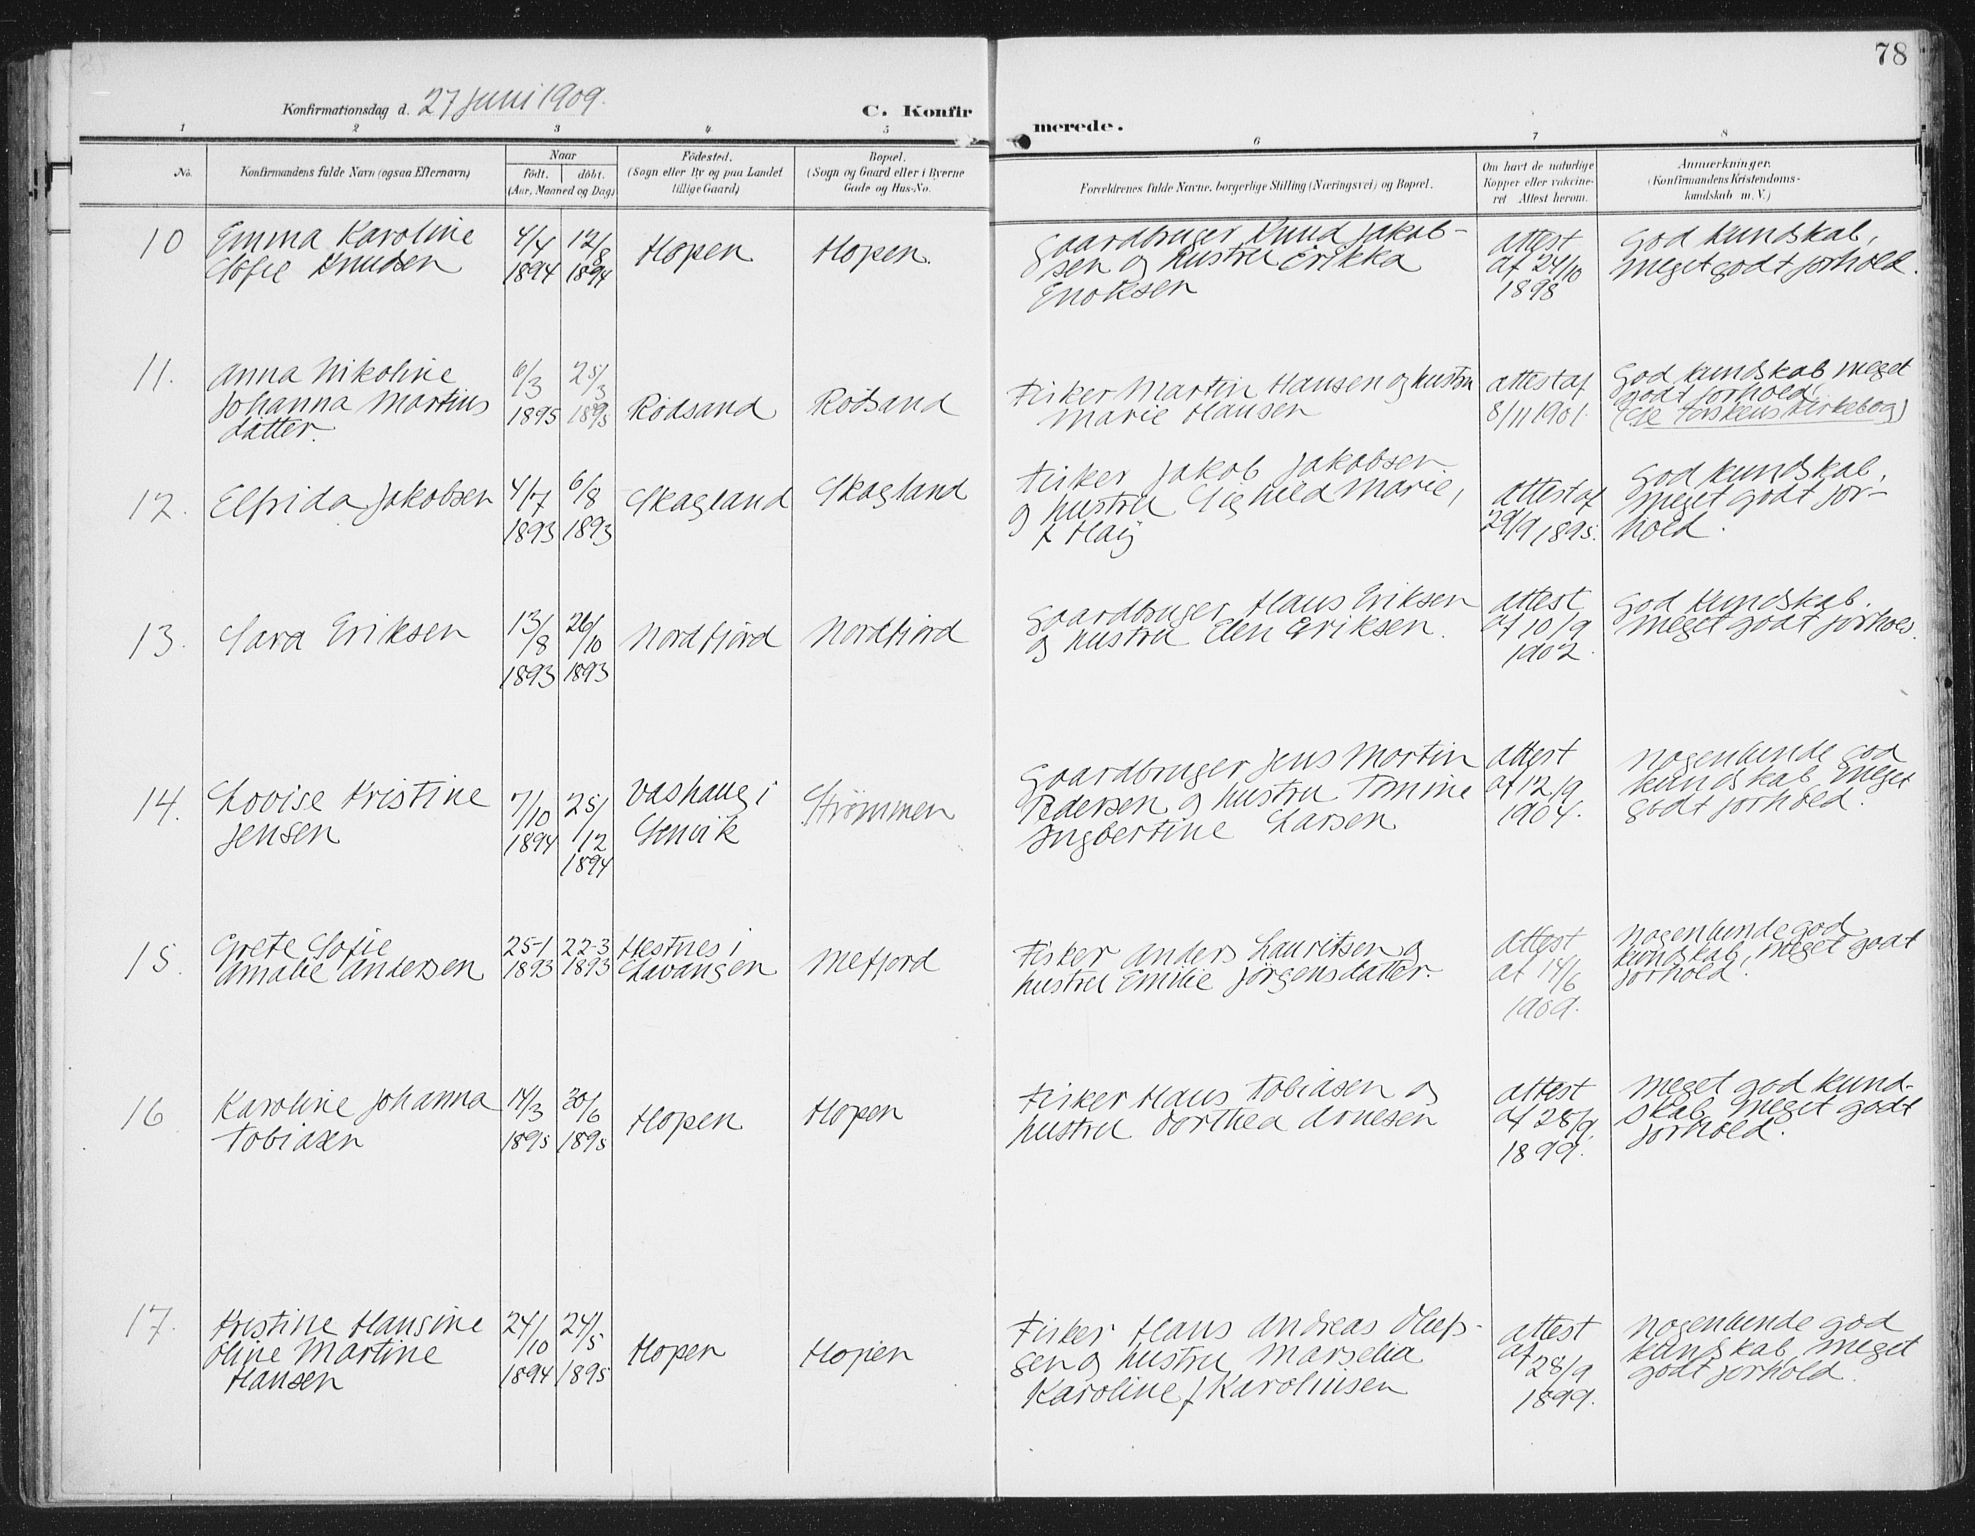 78
Konfirmationsdag d. 27 Juni 1909.
C. Konfirmerede.
1 2 3 4 5 6 7 8
No.
Konfirmandens fulde Navn (ogsaa Efternavn)
Naar
födt. döbt.
(Aar, Maaned og Dag)
Födested.
(Sogn eller By og paa Landet
tillige Gaard)
Bopæl.
(Sogn og Gaard eller i Byerne
Gade og Hus-No.
Forældrenes fulde Navne, borgerlige Stilling (Næringsvei) og Bopæl.
Om havt de naturlige
Kopper eller vakcine-
ret Attest herom.
Anmærkninger.
(Konfirmandens Kristendoms-
kundskab m. V.)
10 Emma Karoline
Sofie Knudsen
4/4 1894
12/8 1894
Hopen
Hopen.
Gaardbruger Knud Jakob-
sen og hustru Erikka
Enoksen
attest
af 24/10
1898
God kundskab,
meget godt forhold.
11. Anna Nikoline
Johanna Martins
datter.
6/3 1895
25/3 1895
Rödsand
Rödsand
Fisker Martin Hansen og hustru
Marie Hansen
attest af
8/11 1901.
God kundskab meget
godt forhold
(se Torskens kirkebog)
12. Elfrida Jakobsen
4/7 1893
6/8 1893
Skagland
Skagland
Fisker Jakob Jakobsen
og hustru Sighild Marie,
f. Haij
attest af
29/9 1895.
God kundskab,
meget godt for-
hold.
13. Sara Eriksen
13/8 1893
26/10 1893
Nordfjord
Nordfjord
Gaardbruger Hans Eriksen
og hustru Elen Eriksen.
attest
af 10/9
1902.
God kundskab.
meget godt forhold.
14. Lovise Kristine
Jensen
7/10 1894
25/12 1894
Vashaug i
Lenvik
Strømmen
Gaardbruger Jens Martin
Pedersen og hustru Tomine
Ingbertine Larsen
attest
af 12/9
1904.
nogenlunde god
kundskab, meget
godt forhold.
15. Grete Sofie
Amalie Andersen
25-1 1893
22-3 1893
Hestnes i
Lavangen
Mefjord
Fisker Anders Lauritsen og
hustru Emilie Jörgensdatter.
attest
af 14/6
1909.
nogenlunde god
kundskab, meget godt
forhold.
16 Karoline Johanna
Tobiasen
14/3 1895
30/6 1895
Hopen
Hopen
Fisker Hans Tobiasen og
hustru Dorthea Arnesen
attest
af 28/9.
1899.
meget god kund-
skab, meget godt
forhold.
17. Kristine Hansine
Oline Martine
Hansen
24/10 1894
24/5 1895
Hopen
Hopen
Fisker Hans Andreas Oluf-
sen og hustru Marselia
Karoline f Karolinsen
attest
af 28/9
1899.
nogenlunde god
kundskab, meget
godt forhold.